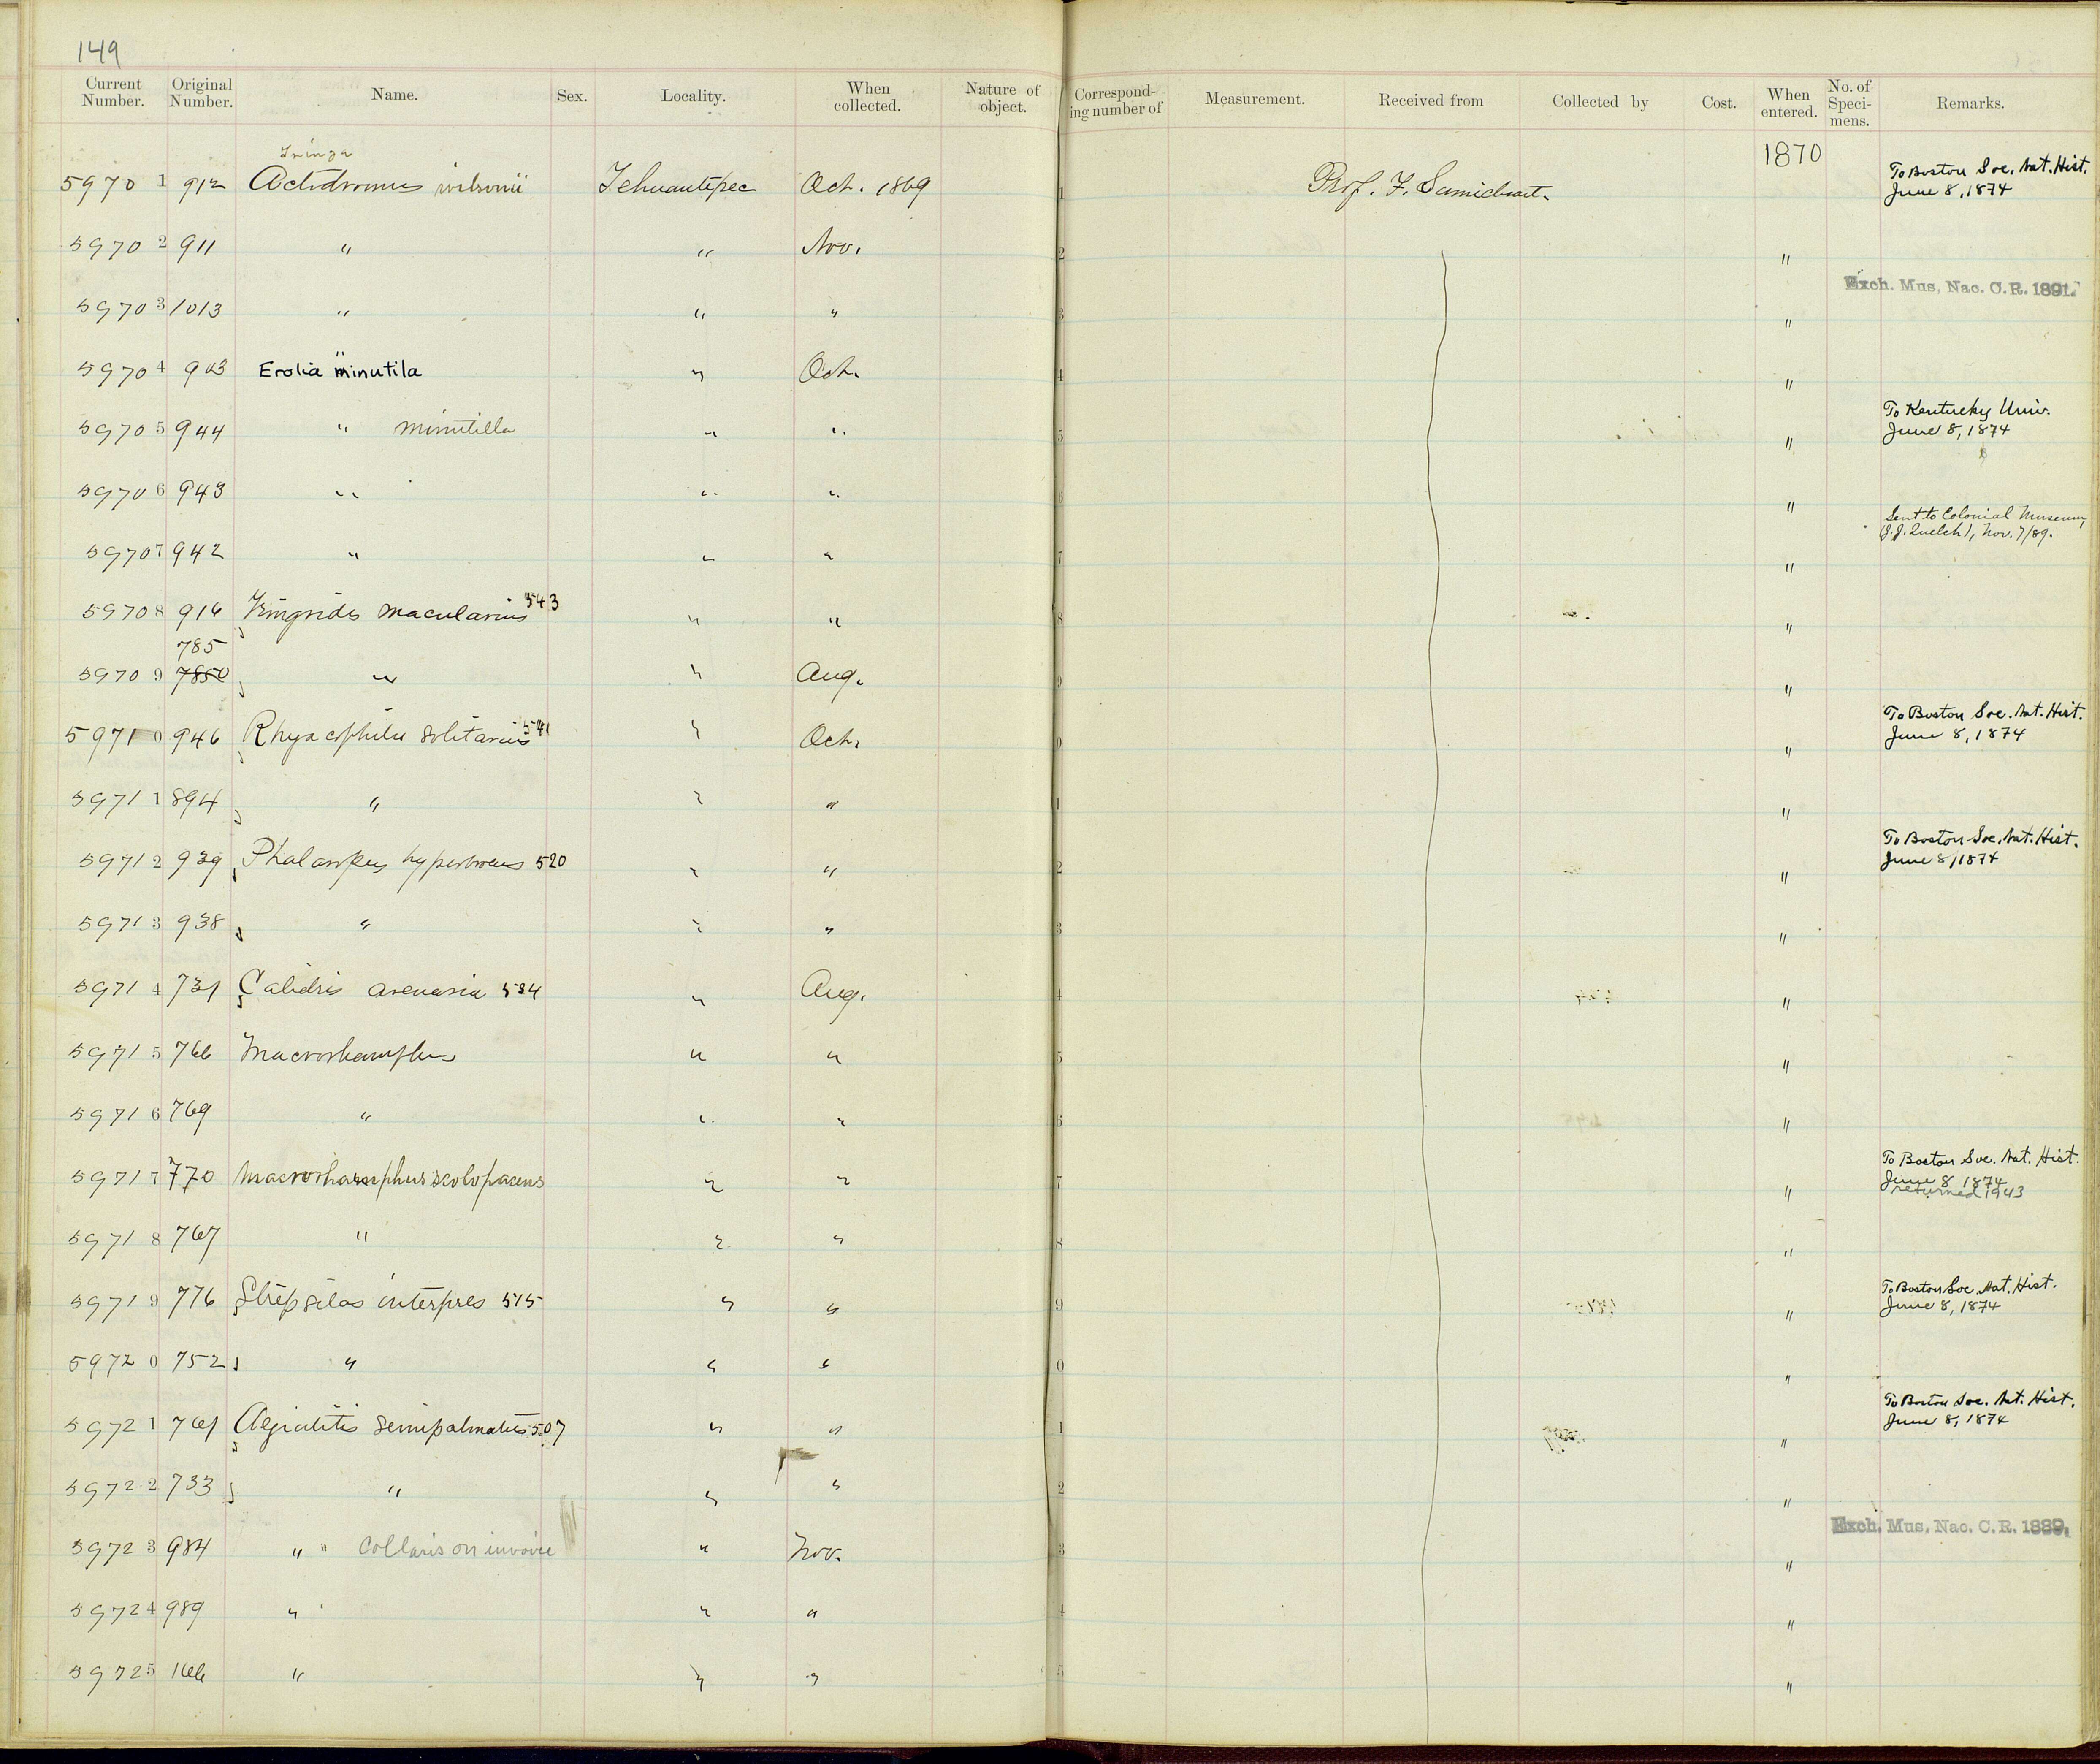 149
Current Number. Original Number. Name. Sex. Locality. When collected. Nature of object. Corresponding number of Measurement. Received from Collected by Cost. When entered. No. of Specimens. Remarks.
Tringa
1870
59701 912 Actodromus wilsonii Tehuantepec Oct. 1869 1 Prof. F. Sumichrast. To Boston Soc. Nat. Hist.
June 8, 1874
59702 911 " " Nov. 2 "
Exch. Mus. Nac. C.R. 1891.
59703 1013 " " " 3 "
"
59704 903 Erolia minutila " Oct. 4 "
To Kentucky Univ.
59705 944 " minutilla " " 5 " June 8, 1874
59706 943 " " " 6 "
Sent to Colonial Museum
(J.J. Quelch), Nov. 7/89.
59707 942 " " " 7 "
59708 916 Tringoides macularius 543 " " 8 "
785
59709 7850 " " Aug. 9 "
To Boston Soc. Nat. Hist.
59710 946 Rhyacophilus solitarius 541 " Oct. 0 " June 8, 1874
59711 894 " " " 1 "
To Boston Soc. Nat. Hist.
59712 939 Phalaropus hyperboreus 520 " " 2 " June 8, 1874
59713 938 " " " 3 "
59714 731 Calidris arenaria 534 " Aug. 4 "
59715 766 Macrorhamphus " " 5 "
59716 769 " " " 6 "
To Boston Soc. Nat. Hist.
59717 770 Macrorhamphus scolopaceus " " 7 " June 8 1874
returned 1943
59718 767 " " " 8 "
To Boston Soc. Nat. Hist.
59719 776 Strepsilas interpres 515 " " 9 " June 8, 1874
59720 752 " " " 0 "
To Boston Soc. Nat. Hist.
59721 761 Aegialitis semipalmatus 507 " " 1 " June 8, 1874
59722 733 " " " 2 "
Exch. Mus. Nac. C.R. 1889.
59723 984 " " Collaris on invoice " Nov. 3 "
59724 989 " " " 4 "
59725 166 " " " 5 "